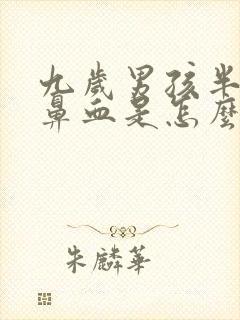 九歲男孩半
鼻血是怎麼
朱麟華